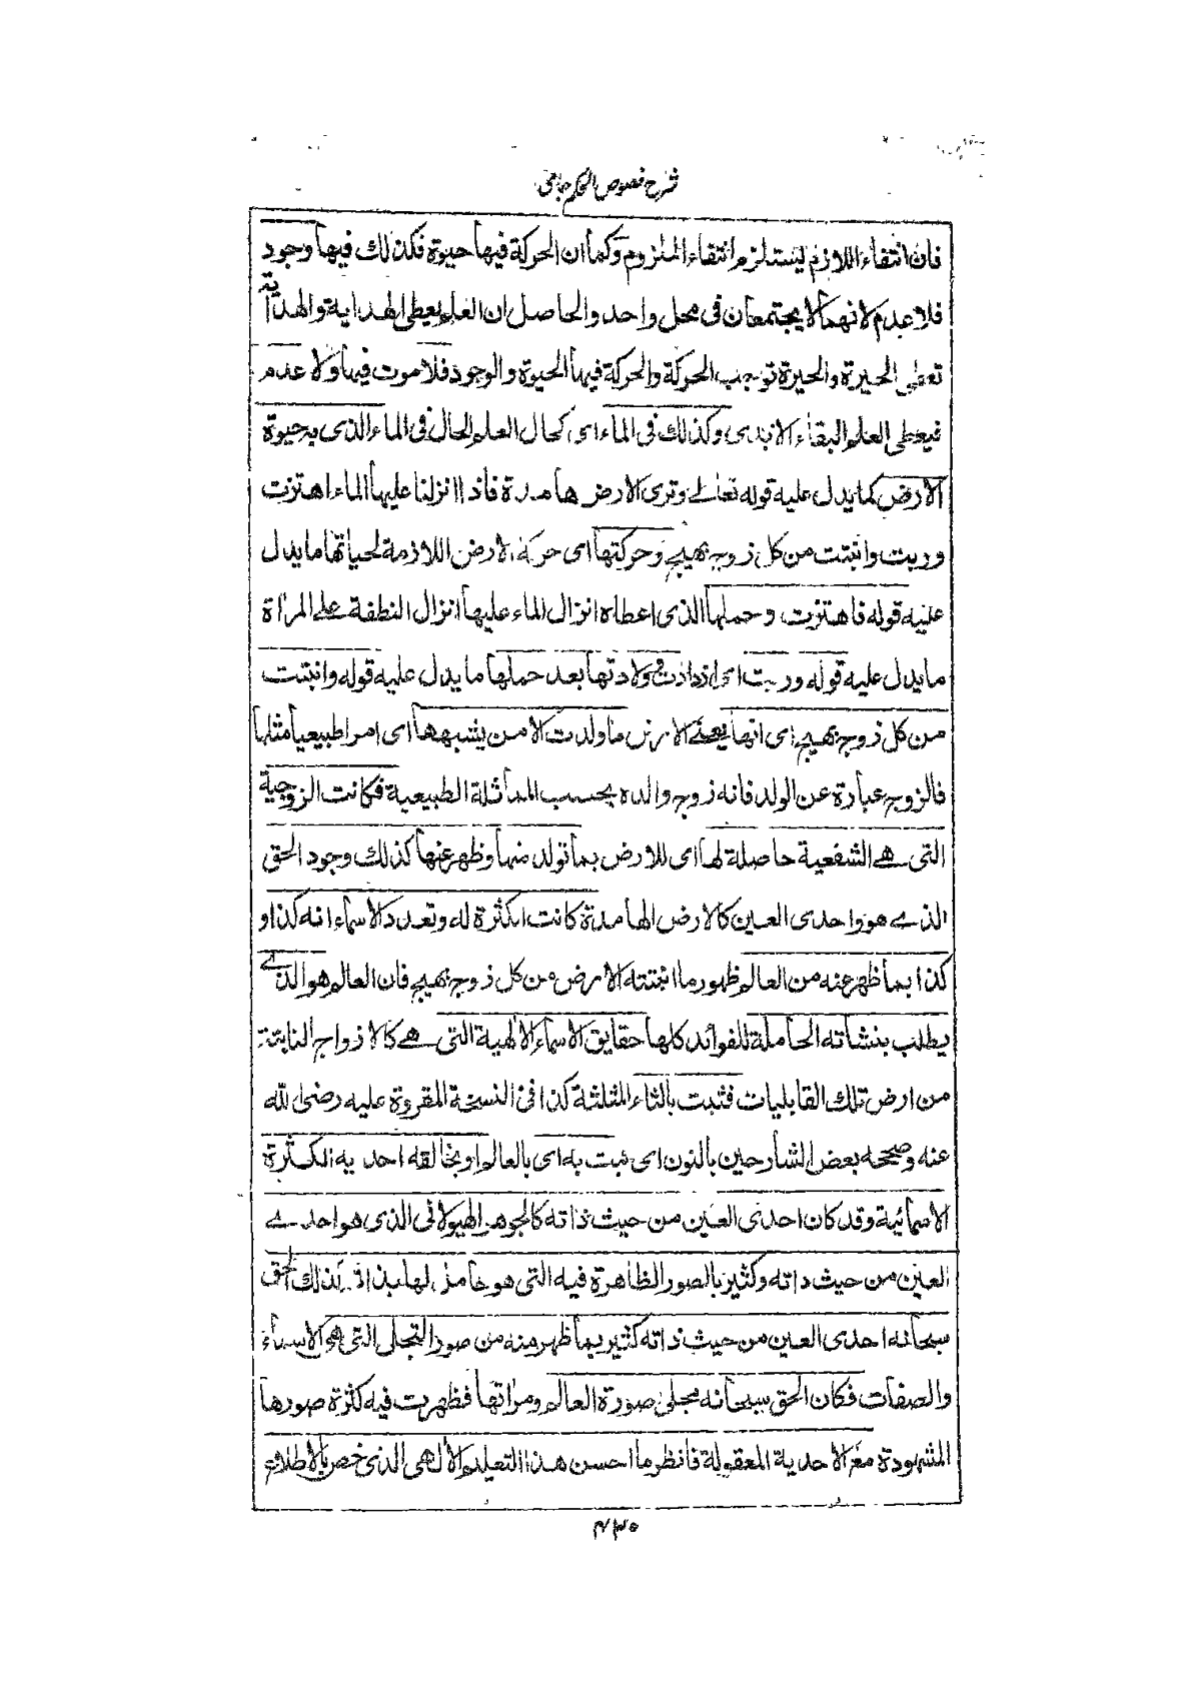 شرح فصوص الحكم جامى
فان انتفاء اللازم يستلزم انتفاء الملزوم وكما ان الحركة فيها حيوة فكذلك فيها وجود
فلا عدم لانهما لا يجتمعان فى محل واحد والحاصل ان العلم يعطى الهداية والهداية
تعطى الحيرة والحيرة توجب الحركة والحركة فيها الحيوة والوجود فلا موت فيها ولا عدم
فيعطى العلم البقاء الابدى وكذلك فى الماء اى كحال العلم الحال فى الماء الذى به حيوة
الارض كما يدل عليه قوله تعالے وترى الارض هامدة فاذا انزلنا عليها الماء اهتزت
وربت وانبتت من كل زوج بهيج وحركتها اى حركة الارض اللازمة لحياتها ما يدل
عليه قوله فاهتزت وحملها الذى اعطاه انزال الماء عليها انزال النطفة علے المراة
ما يدل عليه قوله وربت اى ازدادت وولادتها بعد حملها ما يدل عليه قوله وانبتت
من كل زوج بهيج اى انها يعنے الارض ما ولدت الا من يشبهها اى امرا طبيعيا مثلها
فالزوج عبارة عن الولد فانه زوج والده بحسب المماثلة الطبيعية فكانت الزوجية
التى هے الشفعية حاصلة لها اى للارض بما تولد منها وظهر عنها كذلك وجود الحق
الذے هو واحدى العين كالارض الهامدة كانت الكثرة له وتعدد الاسماء انه كذا و
كذا بما ظهر عنه من العالم ظهور ما انبتته الارض من كل زوج بهيج فان العالم هو الذے
يطلب بنشاته الحاملة للفوائد كلها حقايق الاسماء الالهية التى هے كالازواج النابتة
من ارض تلك القابليات فثبت بالثاء المثلثة كذا فى النسخة المقروة عليه رضى الله
عنه وصححه بعض الشارحين بالنون اى نبت به اى بالعالم او بخالقه احديه الكثرة
الاسمائية وقد كان احدى العين من حيث ذاته كالجوهر الهيولانى الذى هو احدے
العين من حيث ذاته وكثير بالصور الظاهرة فيه التى هو حامل لها بذاته كذلك الحق
سبحانه احدى العين من حيث ذاته كثير بما ظهر منه من صور التجلى التى هى الاسماء
والصفات فكان الحق سبحانه مجلى صورة العالم ومراتها فظهرت فيه كثرة صورها
المشهودة مع الاحدية المعقولة فانظر ما احسن هذا التعليم الالهى الذى خص بالاطلاع